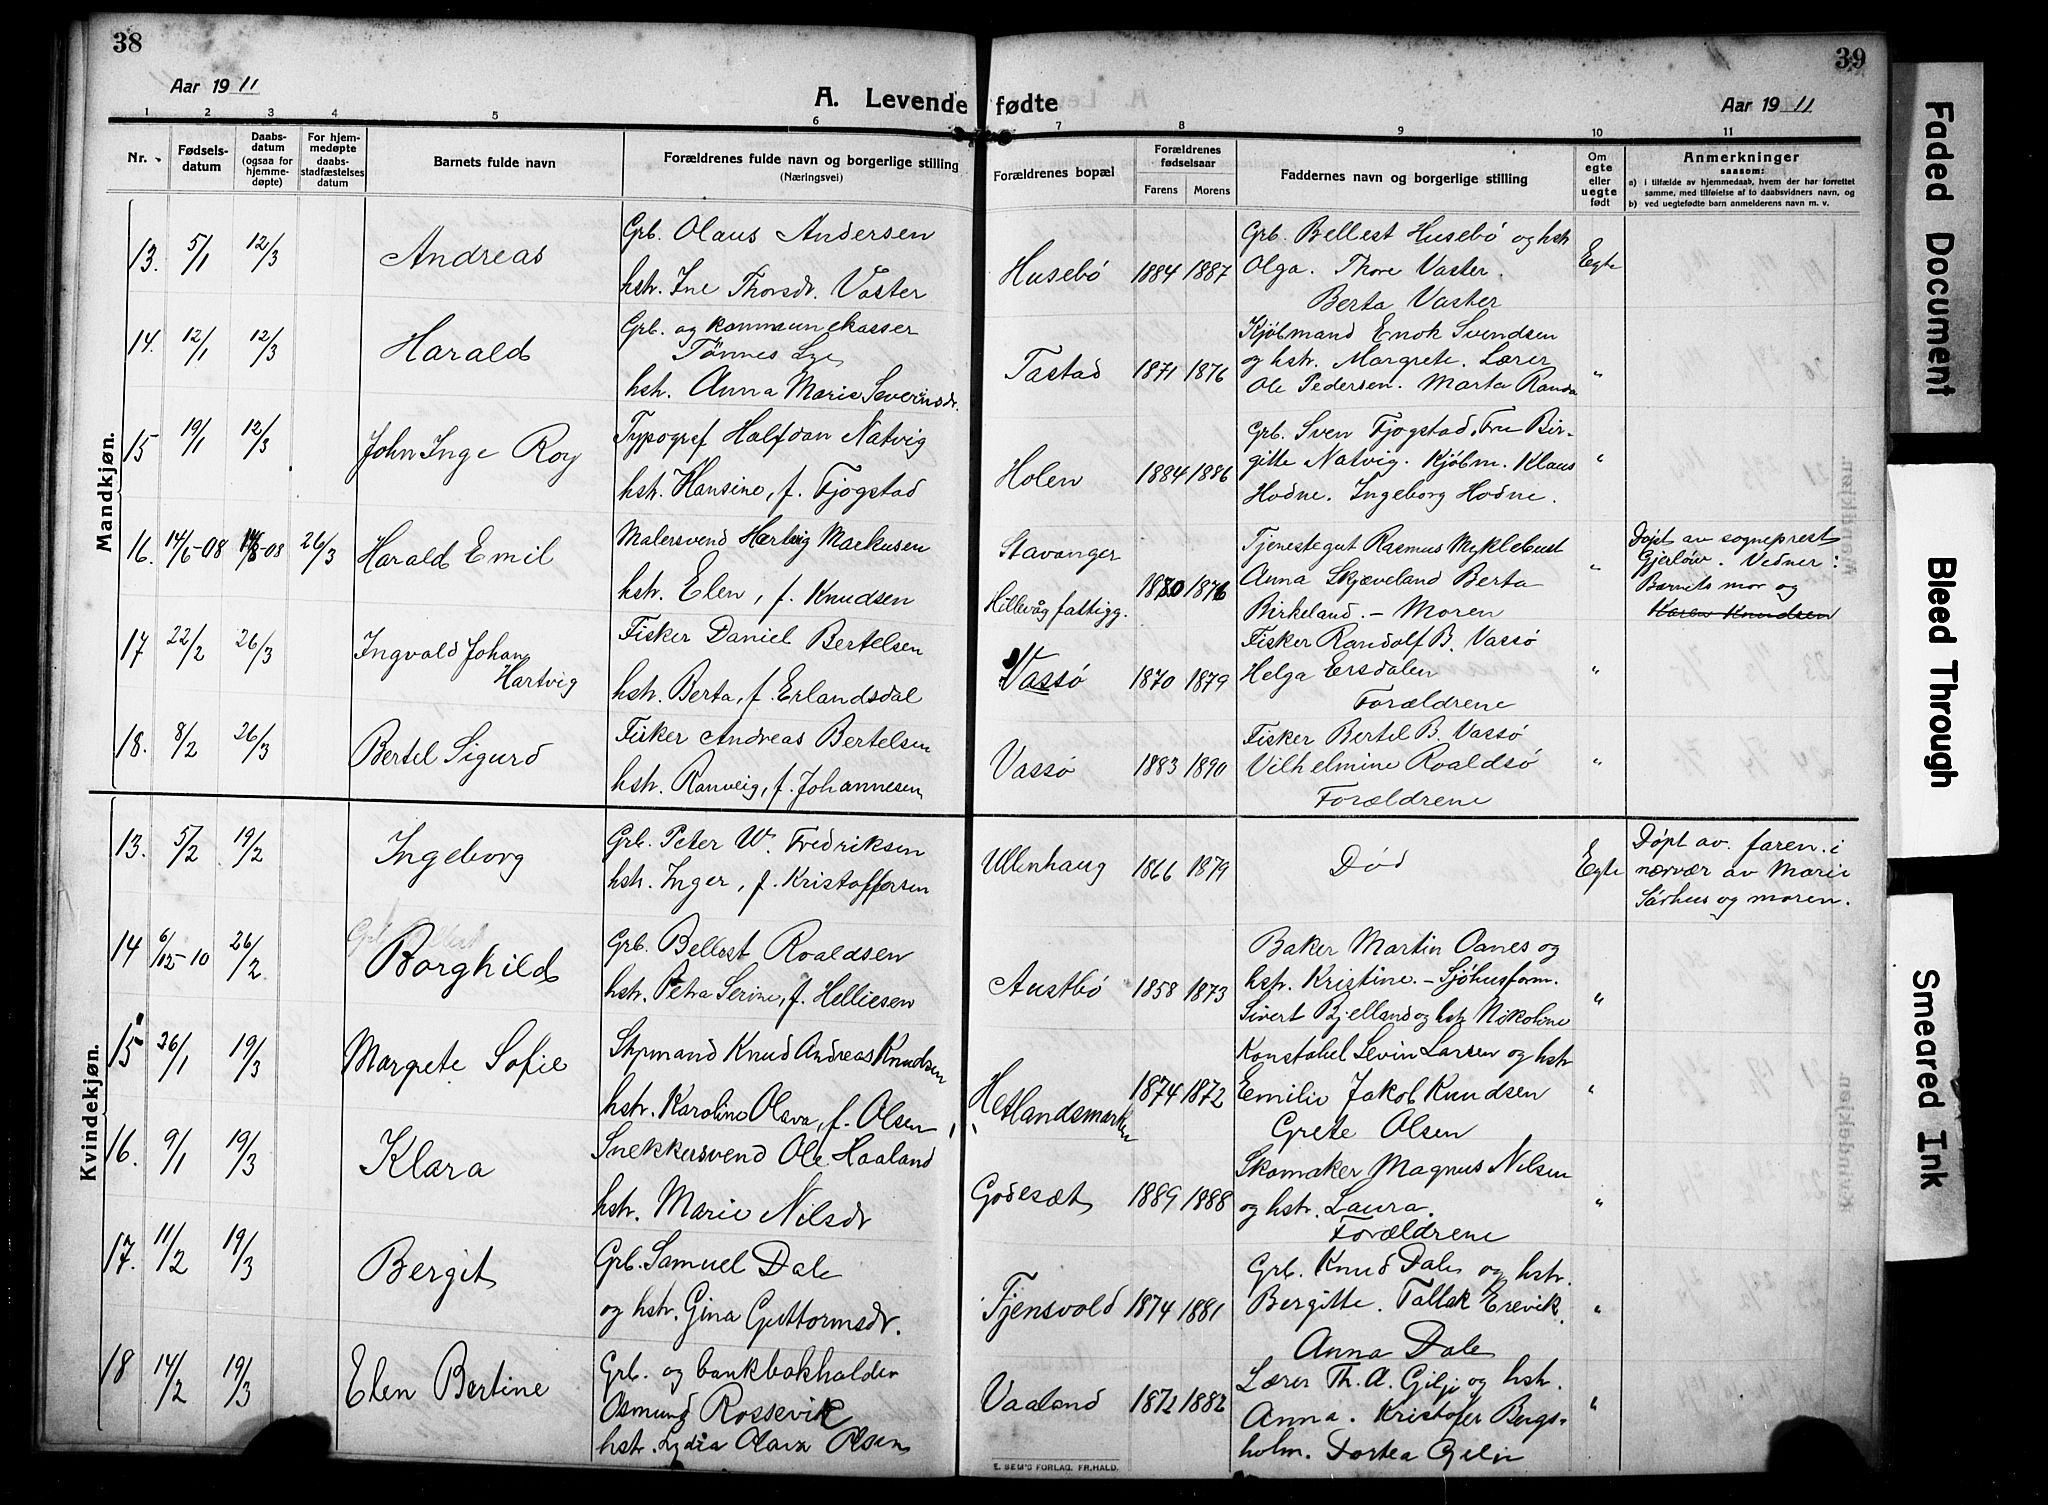 38
39
Aar 19 11
A. Levende fødte
Aar 19 11
1 2 3 4 5 6 7 8 9 10 11
Nr.
Fødsels-
datum
Daabs-
datum
(ogsaa for
hjemme-
døpte)
For hjem-
medøpte
daabs-
stadfæstelses
datum
Barnets fulde navn
Forældrenes fulde navn og borgerlige stilling
(Næringsvei)
Forældrenes bopæl
Forældrenes
fødselsaar
Farens Morens
Faddernes navn og borgerlige stilling
Om
egte
eller
uegte
født
Anmerkninger
saasom:
a) i tilfælde av hjemmedaab, hvem der har forrettet
samme, med tilføielse af to daabsvidners navn, og
b) ved uegtefødte barn anmelderens navn m. v.
Mandkjøn.
13. 5/1 12/3 Andreas
Grb. Olaus Andersen
hstr. Ine Thorsdr. Vaster
Husebö 1884 1887
Grb. Bellest Husebö og hstr
Olga. Thore Vaster.
Berta Vaster
Egte
14. 12/1 12/3 Harald
Grb. og kommunekasser
Tönnes Lye
hstr. Anna Marie Severinsdr.
Tastad 1871 1876
Kjöbmand Enok Svendsen
og hstr. Margrete. Lærer
Ole Pedersen. Marta Randa
"
15 19/1 12/3 John Inge Roy
Typograf Halfdan Natvig
hstr. Hansine, f. Fjogstad
Holen 1884 1886
Grb. Sven Fjogstad. Fru Bir-
gitte Natvig. Kjöbm. Klaus
Hodne. Ingeborg Hodne.
"
16. 14/5-08 26/3 Harald Emil
Malersvend Hartvig Markusen
hstr. Elen, f. Knudsen
Stavanger
Hillevåg fattigg.
1880 1876
Tjenestegut Rasmus Myklebust
Anna Skjæveland Berta
Birkeland. - Moren
"
Döpt av sogneprest
Gjerlöw. Vidner:
Barnets mor og
Karen Knudsen
17 22/2 26/3 Ingvald Johan
Hartvig
Fisker Daniel Bertelsen
hstr. Berta, f. Erlandsdal
Vassö 1870 1879
Fisker Randolf B. Vassö
Helga Ersdalen
Forældrene
"
18. 8/2 26/3 Bertel Sigurd
Fisker Andreas Bertelsen
hstr. Ranveig, f. Johannesen
Vassö 1883 1890
Fisker Bertel B. Vassö
Vilhelmine Roaldsö
Forældrene
"
Kvindekjøn.
13. 5/2 19/2 Ingeborg
Grb. Peter W. Fredriksen
hstr. Inger, f. Kristoffersen
Ullenhaug 1866 1879
Död
Egte
Döpt av faren i
nærvær av Marie
Sörhus og moren.
14 6/12-10 26/2 Borghild
Grb. Bellest Roaldsen
hstr. Petra Serine, f. Helliesen
Austbö 1858 1873
Baker Martin Oanes og
hstr. Kristine. - Sjöhusform.
Sivert Bjelland og hstr Nikoline
"
15 26/1 19/3 Margrete Sofie
Styrmand Knud Andreas Knudsen
hstr. Karoline Olava, f. Olsen
Hetlandsmarken 1874 1872
Konstabel Sevin Larsen og hstr
Emilie Jakob Knudsen
Grete Olsen
"
16. 9/1 19/3 Klara
Snekkersvend Ole Haaland
hstr. Marie Nilsdr
Godesæt 1889 1888
Skomaker Magnus Nilsen
og hstr. Laura.
Forældrene
"
17. 11/2 19/3 Bergit
Grb. Samuel Dale
og hstr. Gina Guttormsdr.
Tjensvold 1874 1881
Grb. Knud Dale og hstr.
Bergitte. Tallak Erevik.
Anna Dale
"
18 14/2 19/3 Elen Bertine
Grb. og bankbokholder
Osmund Rossevik
hstr. Lydia Olava Olsen
Vaaland 1872 1882
Lærer Th. A. Gilje og hstr.
Anna. Kristofer Bergs-
holm. Dortea Gilje
"
E. SEM'S FORLAG. FR.HALD.
Faded Document
Bleed Through
Smeared Ink